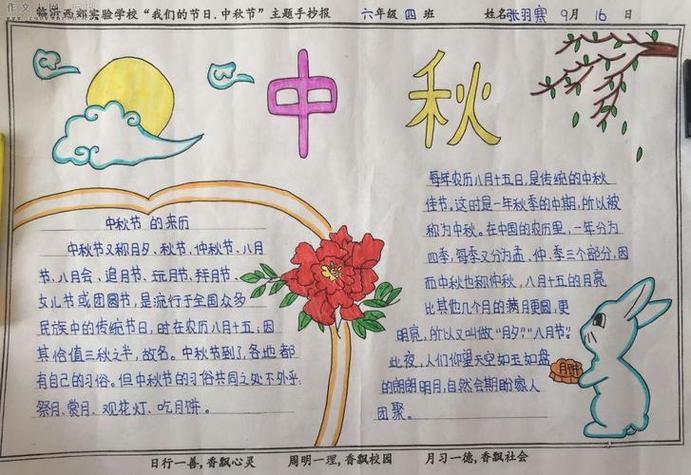 临沂西郊实验学校“我们的节日.中秋节”主题手抄报 六年级 四 班 姓名张羽寒 9月 16 日
中 秋
中秋节 的来历
中秋节又称月夕、秋节、仲秋节、八月
节、八月会、追月节、玩月节、拜月节、
女儿节或团圆节，是流行于全国众多
民族中的传统节日，时在农历八月十五；因
其恰值三秋之半，故名。中秋节到了各地都
有自己的习俗。但中秋节的习俗共同之处不外乎：
祭月、赏月、观花灯、吃月饼。
每年农历八月十五日，是传统的中秋
佳节。这时是一年秋季的中期，所以被
称为中秋。在中国的农历里，一年分为
四季，每季又分为孟、仲、季三个部分，因
而中秋也称仲秋，八月十五的月亮
比其他几个月的满月更圆，更
明亮，所以又叫做“月夕”，“八月节”。
此夜，人们仰望天空如玉如盘
的朗朗明月，自然会期盼家人
团聚。
月饼
日行一善，香飘心灵 周明一理，香飘校园 月习一德，香飘社会